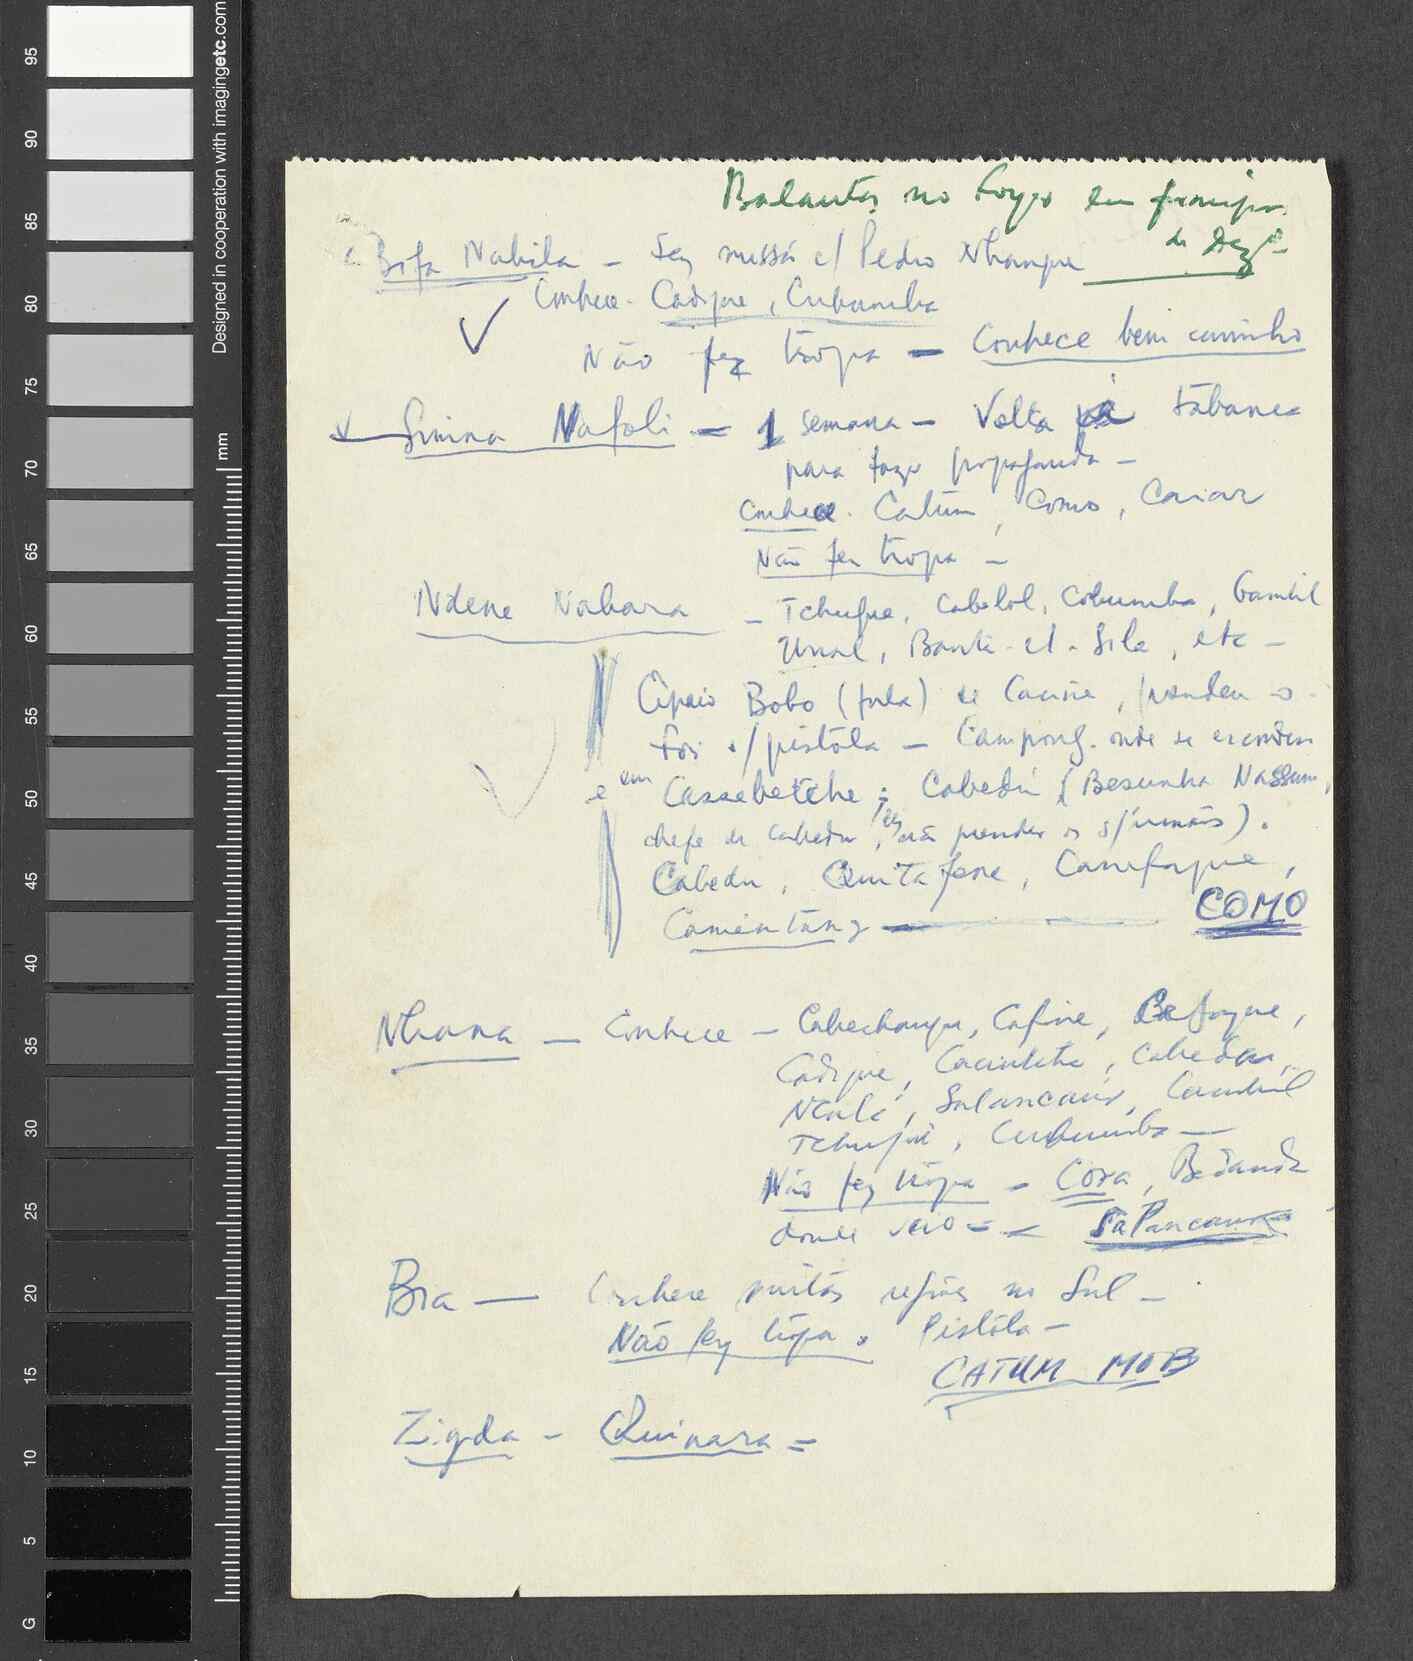 Balantas no Foyer em princip.
de Dez.
Bifa Nabila - fez missão c/ Pedro Nhanque
Conhece - Cadique, Cubumba
Não fez tropa - Conhece bem caminho
Sinina Nafoli = 1 semana - Volta tabanca
para fazer propaganda -
Conhece. Catum, Como, Caiar
Não fez tropa -
Ndene Nabara - Tchuque, Cabolol, Cobumba, Cambil
Unal, Banta-el-Sila, etc -
Cipaio Bobo (fula) de Cacine, prendeu-o
foi s/ pistola - Campong. onde se escondem
e em Cassebetche; Cabedú (Besunha Nassum,
chefe de Cabedu, não prender os s/ irmãos).
Cabedu, Quitafene, Canefaque,
Camentang — COMO
Nhana - Conhece - Cabechanque, Cafine, Cafaque,
Cadique, Caciuletche, Cabedu,
Ntalé, Salancaur, Cambil
Tchuque, Cubumba —
Não fez tropa - Cora, Bedanda
donde veio = - Salancaur
Bia — Conhece muitas regiões no Sul -
Não fez tropa. Pistola -
CATUM MOB
Zigda - Quinara =
95
90
85
80
75
70
65
60
55
50
45
40
35
30
25
20
15
10
5
G
mm
Designed in cooperation with imagingetc.com